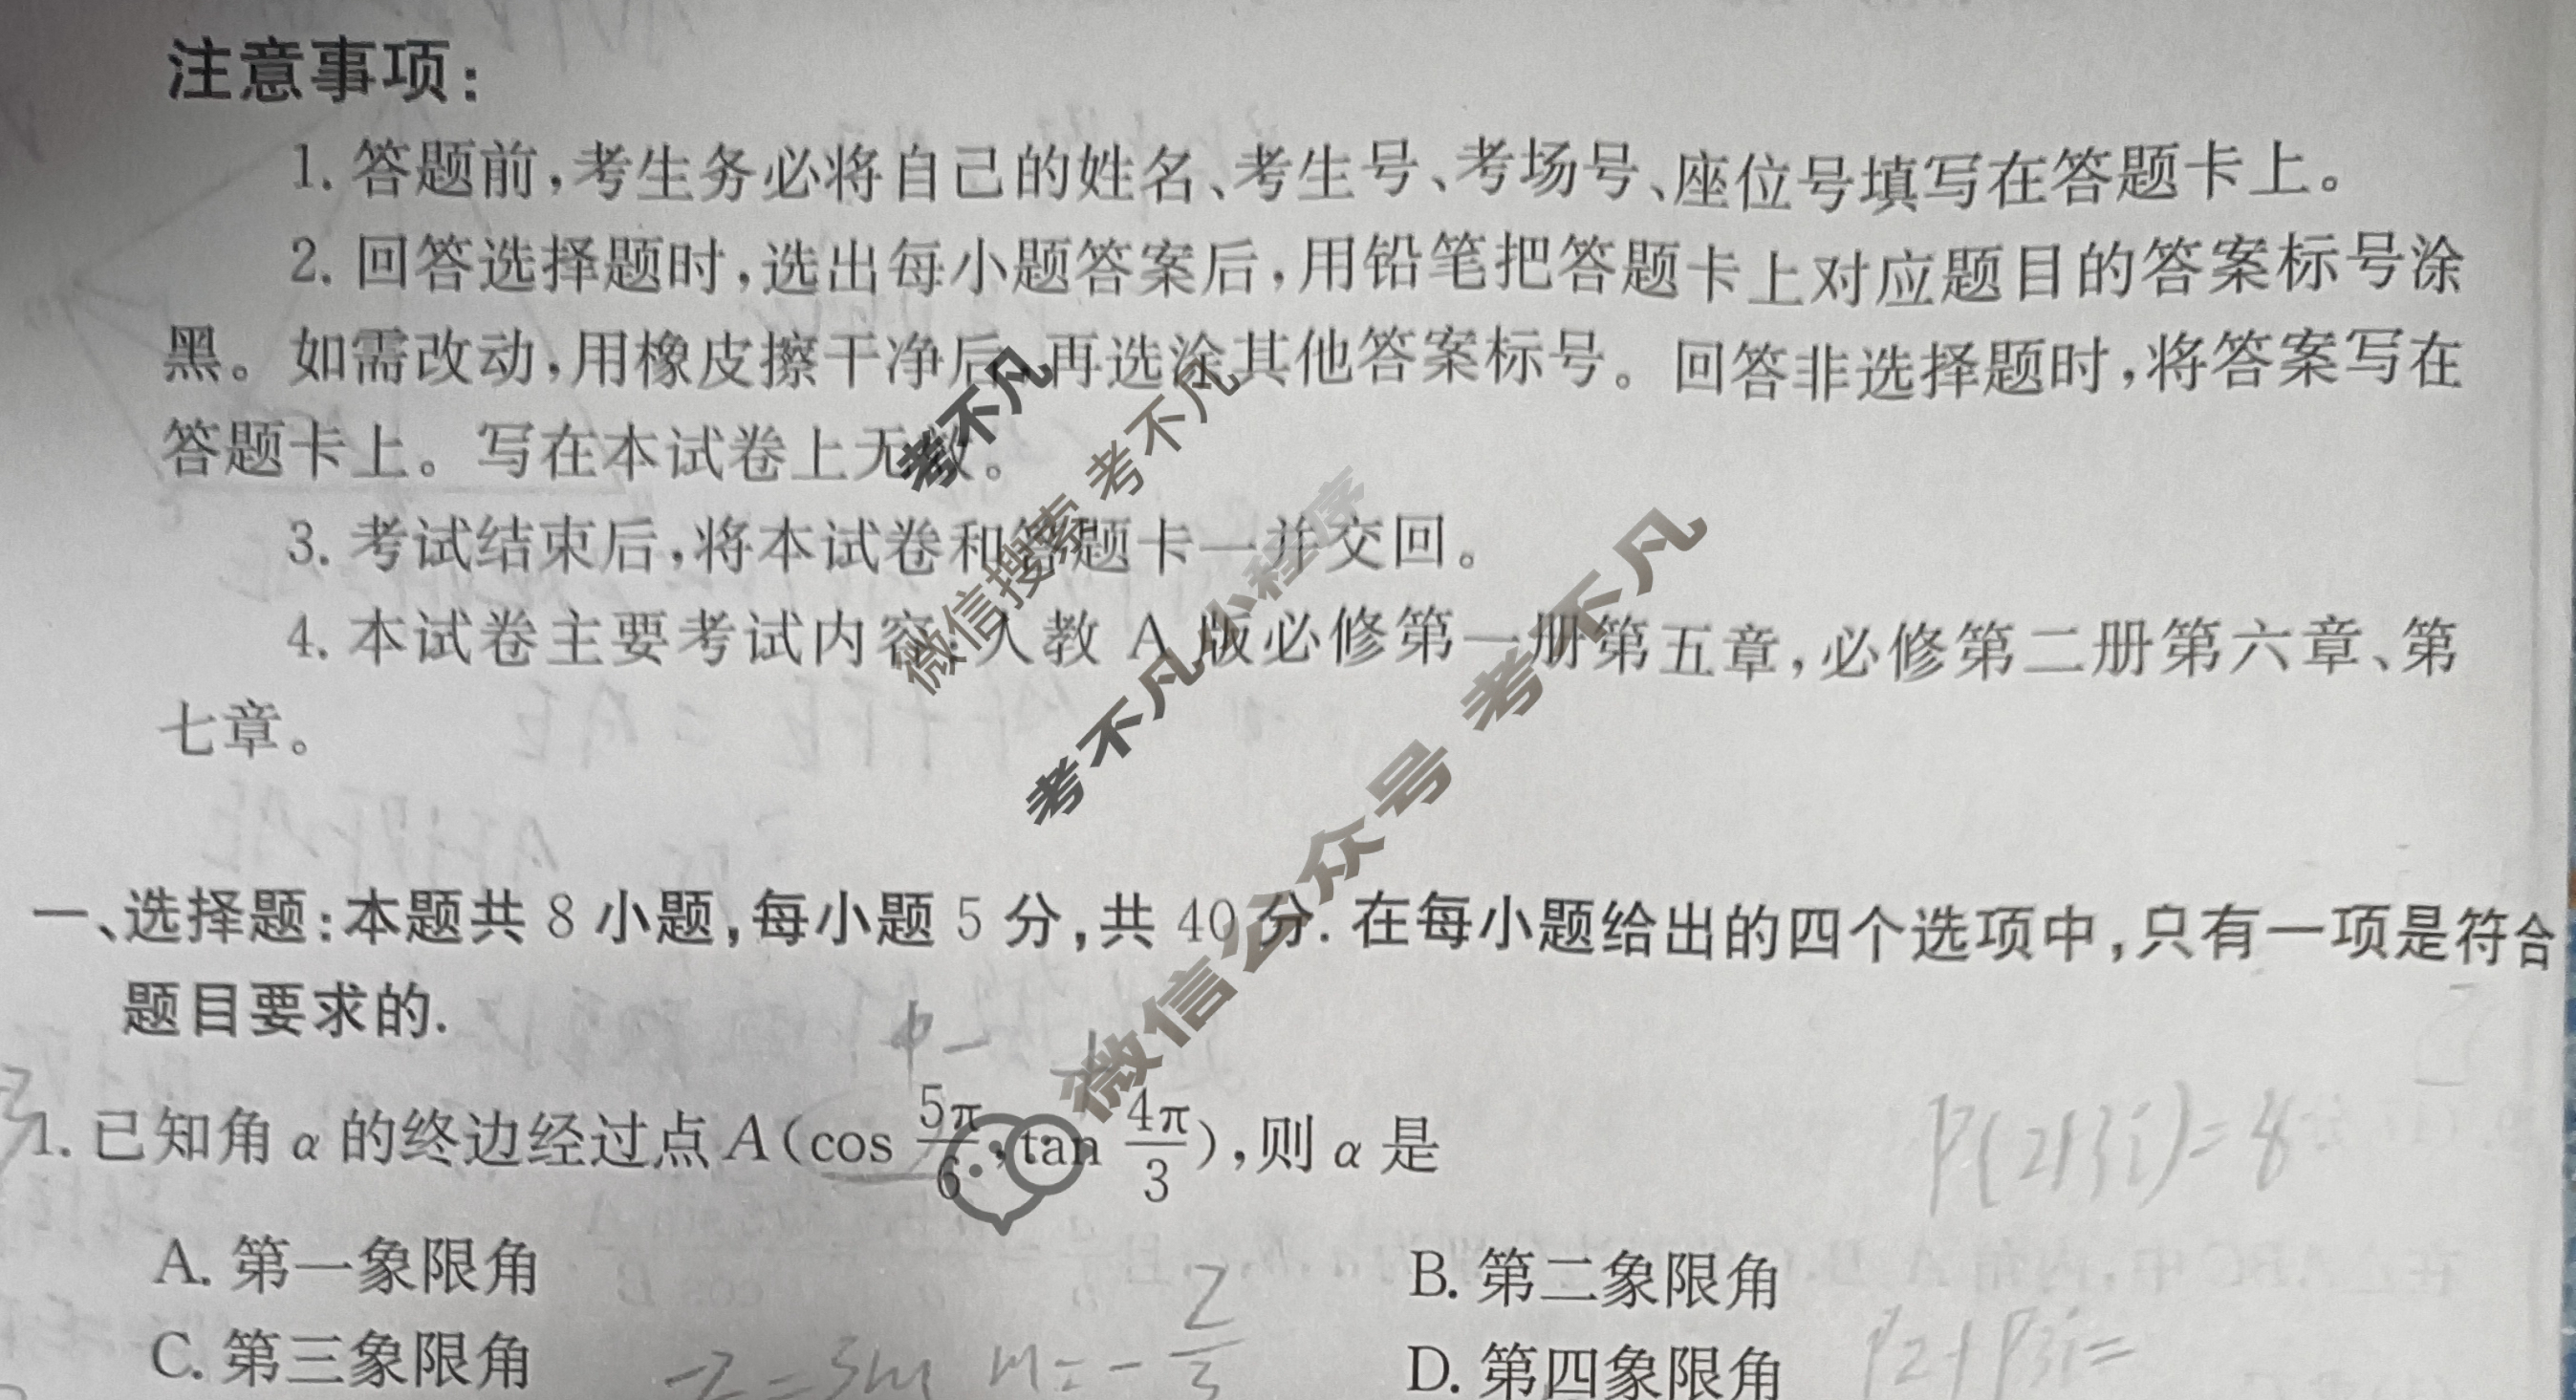 注意事项：
1. 答题前，考生务必将自己的姓名、考生号、考场号、座位号填写在答题卡上。
2. 回答选择题时，选出每小题答案后，用铅笔把答题卡上对应题目的答案标号涂
黑。如需改动，用橡皮擦干净后，再选涂其他答案标号。回答非选择题时，将答案写在
答题卡上。写在本试卷上无效。
3. 考试结束后，将本试卷和答题卡一并交回。
4. 本试卷主要考试内容：人教 A 版必修第一册第五章，必修第二册第六章、第
七章。
考不凡
微信搜索 考不凡
考不凡小程序
微信公众号 考不凡
一、选择题：本题共 8 小题，每小题 5 分，共 40 分. 在每小题给出的四个选项中，只有一项是符合
题目要求的.
1. 已知角 α 的终边经过点 A(cos 5π/6, tan 4π/3)，则 α 是
A. 第一象限角
B. 第二象限角
C. 第三象限角
D. 第四象限角
P(2+3i)=8
P2+P3i=
-2=3m m=-2/3